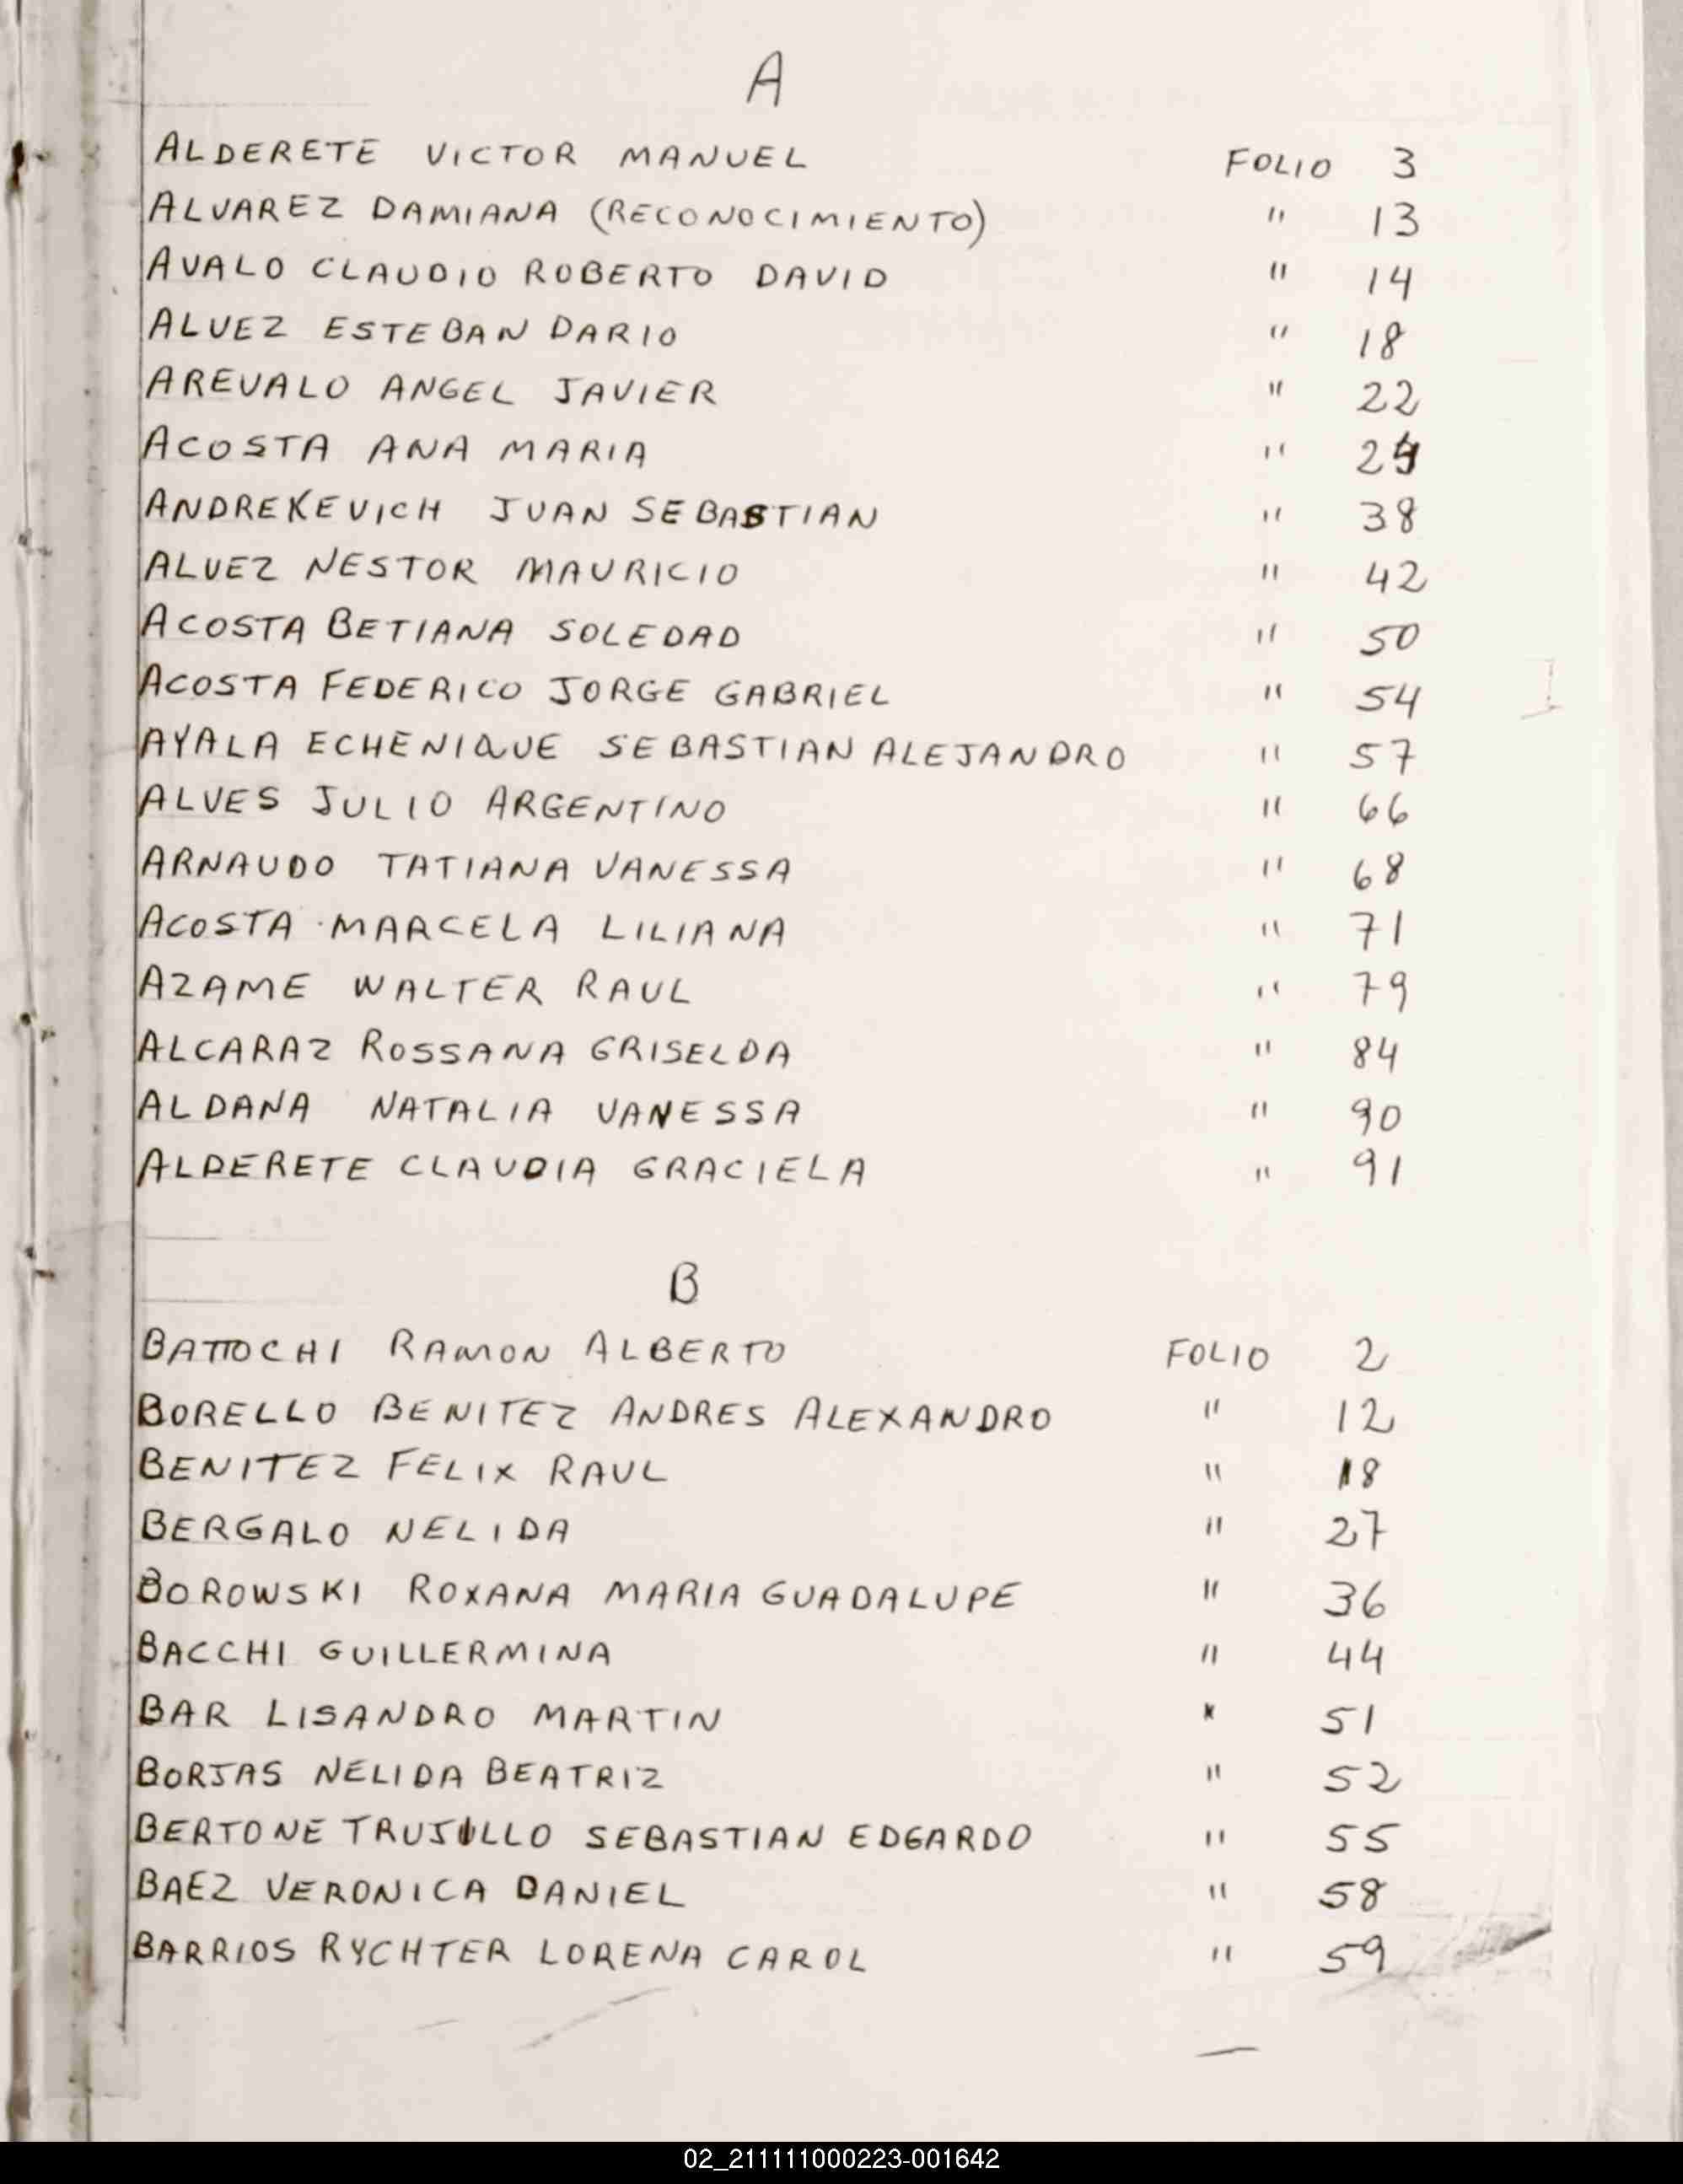 A
ALDERETE VICTOR MANUEL FOLIO 3
ALVAREZ DAMIANA (RECONOCIMIENTO) " 13
AVALO CLAUDIO ROBERTO DAVID " 14
ALVEZ ESTEBAN DARIO " 18
AREVALO ANGEL JAVIER " 22
ACOSTA ANA MARIA "
ANDREKEVICH JUAN SEBASTIAN " 38
ALVEZ NESTOR MAURICIO " 42
ACOSTA BETIANA SOLEDAD " 50
ACOSTA FEDERICO JORGE GABRIEL " 54
AYALA ECHENIQUE SEBASTIAN ALEJANDRO " 57
ALVES JULIO ARGENTINO " 66
ARNAUDO TATIANA VANESSA " 68
ACOSTA MARCELA LILIANA " 71
AZAME WALTER RAUL " 79
ALCARAZ ROSSANA GRISELDA " 84
ALDANA NATALIA VANESSA " 90
ALDERETE CLAUDIA GRACIELA " 91
B
BATTOCHI RAMON ALBERTO FOLIO 2
BORELLO BENITEZ ANDRES ALEXANDRO " 12
BENITEZ FELIX RAUL " 18
BERGALO NELIDA " 27
BOROWSKI ROXANA MARIA GUADALUPE " 36
BACCHI GUILLERMINA " 44
BAR LISANDRO MARTIN " 51
BORJAS NELIDA BEATRIZ " 52
BERTONE TRUJILLO SEBASTIAN EDGARDO " 55
BAEZ VERONICA DANIEL " 58
BARRIOS RYCHTER LORENA CAROL " 59
02_211111000223-001642